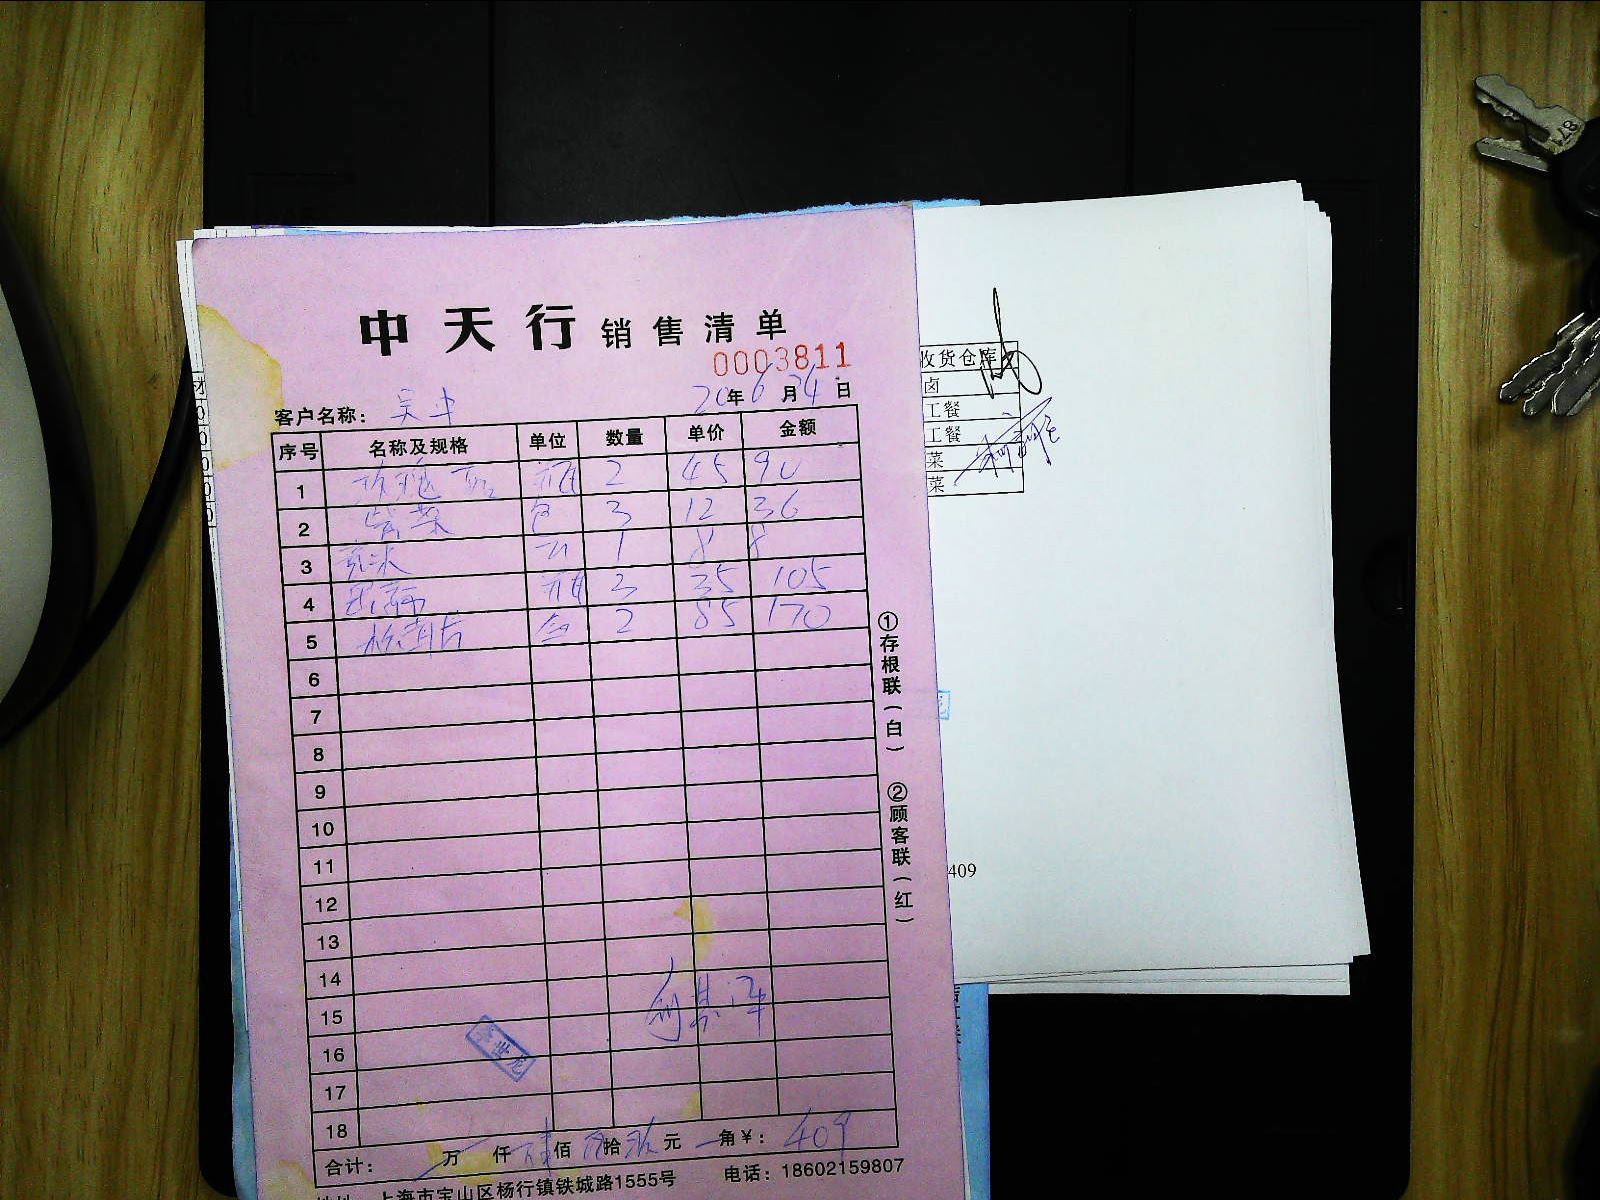 中天行 销售清单
0003811
客户名称： 20年6月24日
序号 名称及规格 单位 数量 单价 金额
1 玫瑰露 瓶 2 45 90
2 紫菜 包 3 12 36
3 1 8 8
4 瓶 3 35 105
5 盒 2 85 170
6
7
8
9
10
11
12
13
14
15
16
17
18
合计： 万 仟 肆佰 零拾 玖元 角￥： 409
地址：上海市宝山区杨行镇铁城路1555号 电话：18602159807
①存根联（白） ②顾客联（红）
李世龙
收货仓库
卤
工餐
工餐
菜
菜
409
材
0
0
0
0
0
871